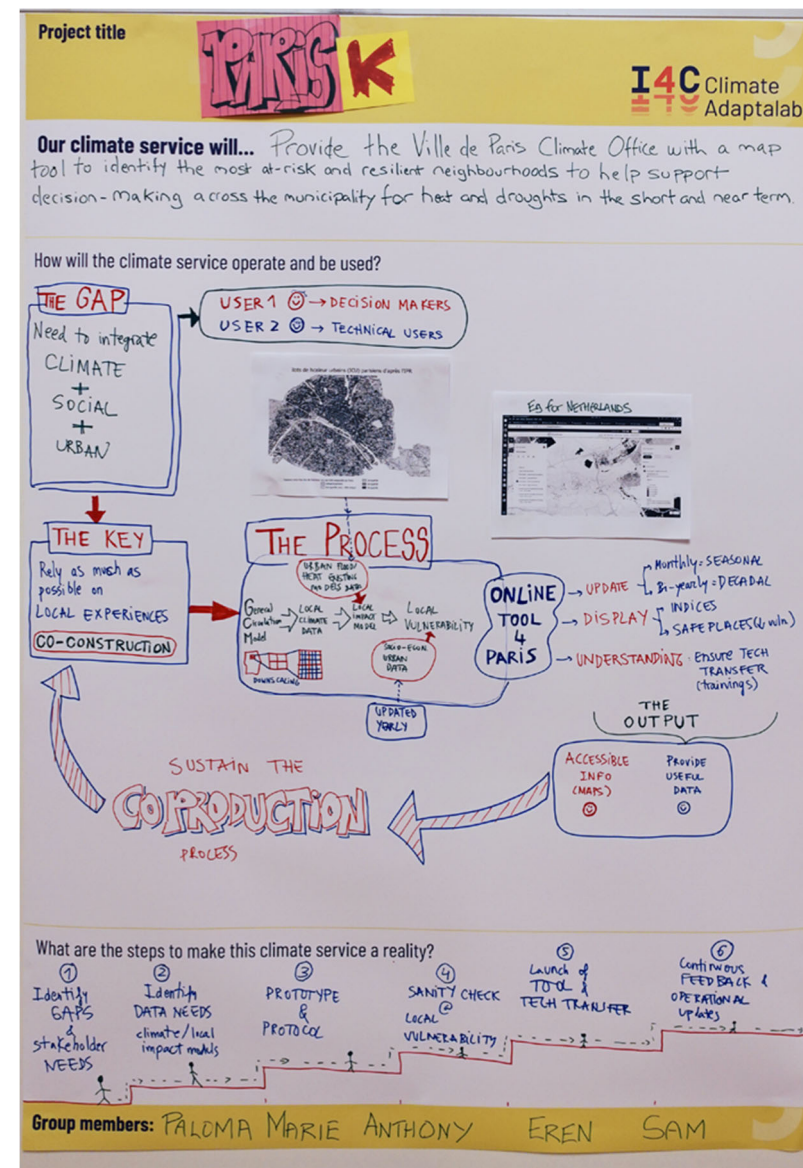 Project title
PARIS K
I4C Climate
Adaptalab
Our climate service will... Provide the Ville de Paris Climate Office with a map
tool to identify the most at-risk and resilient neighbourhoods to help support
decision-making across the municipality for heat and droughts in the short and near term.
How will the climate service operate and be used?
THE GAP
Need to integrate
CLIMATE
+
SOCIAL
+
URBAN
USER 1 → DECISION MAKERS
USER 2 → TECHNICAL USERS
Eg for NETHERLANDS
THE KEY
Rely as much as
possible on
LOCAL EXPERIENCES
CO-CONSTRUCTION
THE PROCESS
URBAN FLOOD/
HEAT EXISTING
MODELS DATA
General
Circulation
Model
LOCAL
CLIMATE
DATA
LOCAL
IMPACT
MODEL
LOCAL
VULNERABILITY
DOWNSCALING
SOCIO-ECON.
URBAN
DATA
UPDATED
YEARLY
ONLINE
TOOL
4
PARIS
→ UPDATE
Monthly = SEASONAL
Bi-yearly = DECADAL
→ DISPLAY
INDICES
SAFE PLACES (& vuln.)
→ UNDERSTANDING · Ensure TECH
TRANSFER
(trainings)
THE
OUTPUT
ACCESSIBLE
INFO
(MAPS)
PROVIDE
USEFUL
DATA
SUSTAIN THE
COPRODUCTION
PROCESS
What are the steps to make this climate service a reality?
1
Identify
GAPS
&
stakeholder
NEEDS
2
Identify
DATA NEEDS
climate/local
impact models
3
PROTOTYPE
&
PROTOCOL
4
SANITY CHECK
@
LOCAL
VULNERABILITY
5
Launch of
TOOL &
TECH TRANSFER
6
Continuous
FEEDBACK &
OPERATIONAL
updates
Group members: PALOMA MARIE ANTHONY EREN SAM